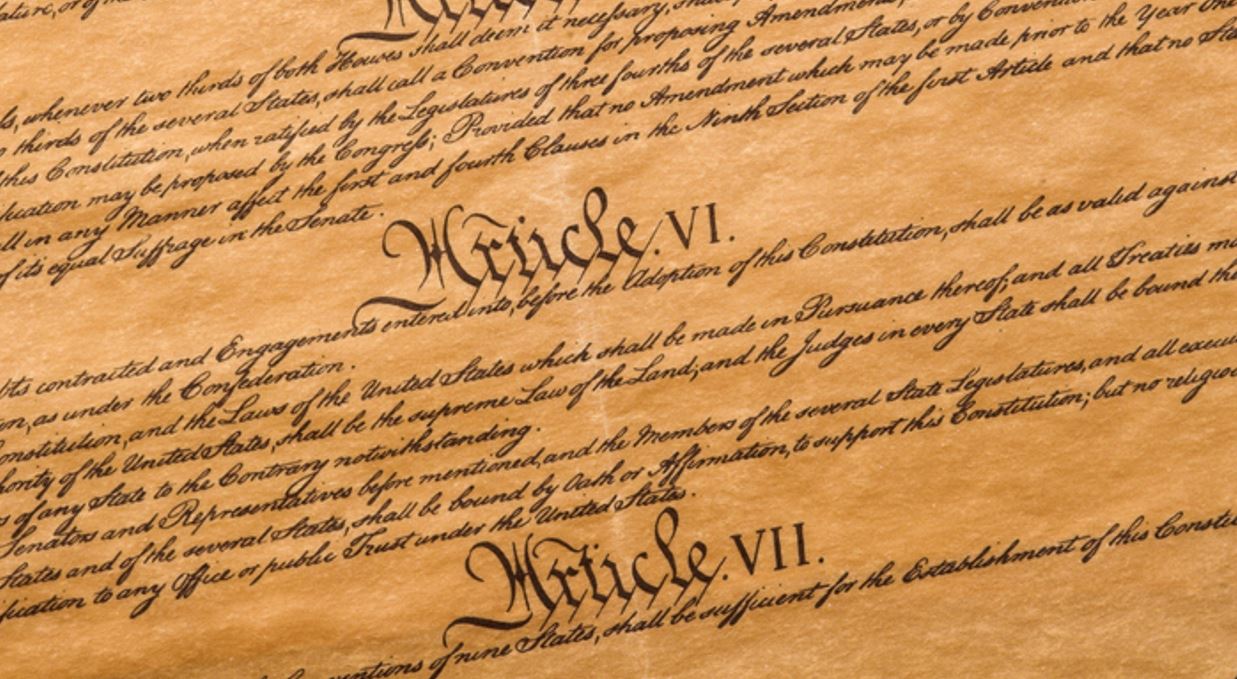 ature, or of
Article
ls, whenever two thirds of both Houses shall deem it necessary, sha
thirds of the several States, shall call a Convention for proposing Amendments,
this Constitution, when ratified by the Legislatures of three fourths of the several States, or by Convention
fication may be proposed by the Congress; Provided that no Amendment which may be made prior to the Year One
ll in any Manner affect the first and fourth Clauses in the Ninth Section of the first Article and that no Sta
of its equal Suffrage in the Senate.
Article. VI.
bts contracted and Engagements entered into, before the Adoption of this Constitution, shall be as valid against
on, as under the Confederation.
onstitution, and the Laws of the United States which shall be made in Pursuance thereof; and all Treaties ma
hority of the United States, shall be the supreme Law of the Land; and the Judges in every State shall be bound the
s of any State to the Contrary notwithstanding.
Senators and Representatives before mentioned, and the Members of the several State Legislatures, and all execu
States and of the several States, shall be bound by Oath or Affirmation, to support this Constitution; but no religio
fication to any Office or public Trust under the United States.
Article. VII.
ventions of nine States, shall be sufficient for the Establishment of this Constitu